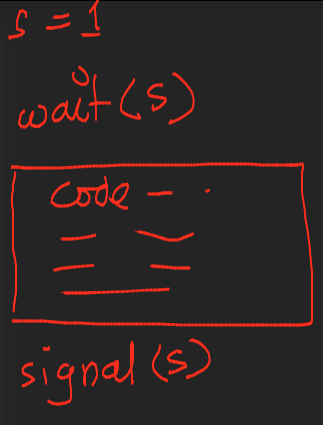 s = 1
wait(s)
code -
signal(s)